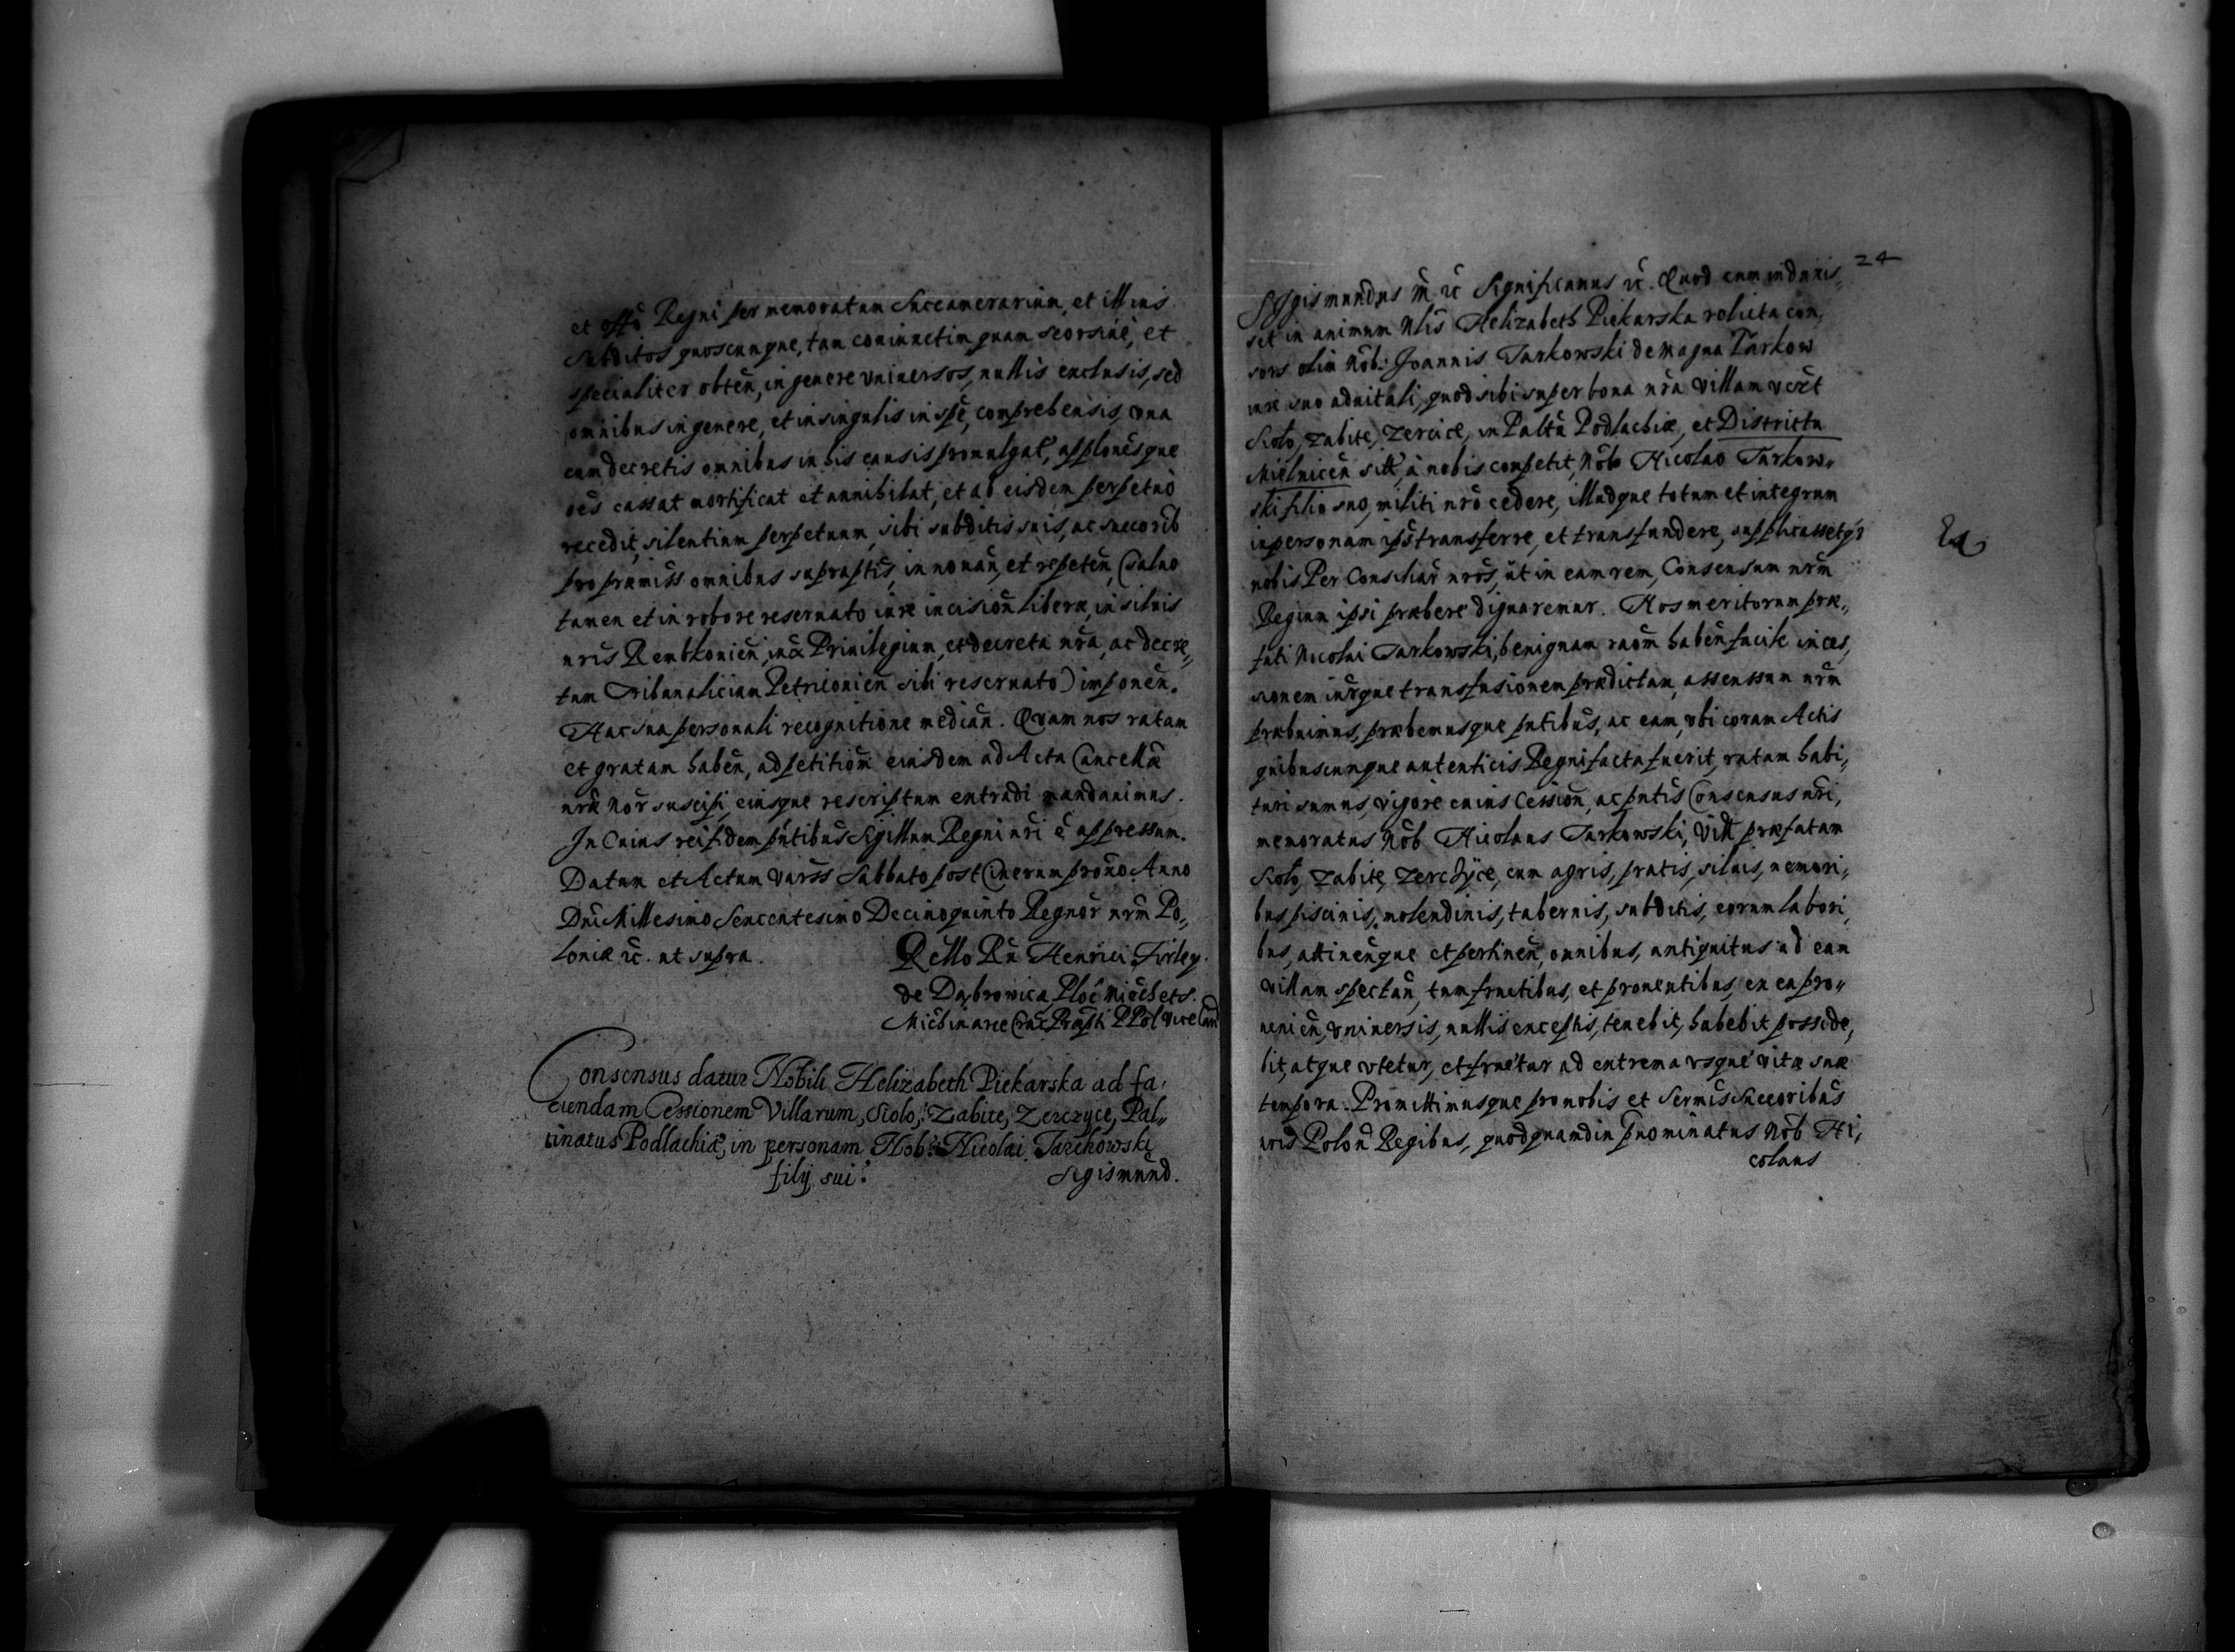 et offo Regni per memoratum Succamerarium, et illius
Subditos quoscunque, tam coniunctim quam seorsiue, et
specialiter obten, in genere vniuersos, nullis exclusis, sed
omnibus in genere, et in singulis in spe, comprehensis, vna
cum decretis omnibus in his causis promulgat, applonesque
oes cassat mortificat et annihilat, et ab eisdem perpetuo
recedit, silentium perpetuum, sibi subditis suis, ac succorib
pro præmiss omnibus supraptis, in nouan, et repeten, (saluo
tamen et in robore reseruato iure incision liberæ, in siluis
nris Rembkonien, iuxa Priuilegium, et decreta nra, ac decre„
tum Tribunalicium Petricouien sibi reseruato) imponen.
Hac sua personali recognitione median. Quam nos ratam
et gratam haben, ad petition eiusdem ad Acta Cancellæ
nræ nor suscipi, eiusque rescriptum extradi mandauimus.
In Cuius rei fidem pntibus Sigillum Regni nri e appressum.
Datum et Actum Varss Sabbato post Cinerum prono Anno
Dni Millesimo Sexcentesimo Decimoquinto Regnor nrm Po„
loniæ rc. ut supra.
Rello Rn Henrici Firley
de Dąbrowica Ploc Miechets.
Consensus datur Nobili Helizabeth Piekarska ad fa„
ciendam Cessionem Villarum, Siolo, Zabite, Zerczyce, Pal„
tinatus Podlachiæ, in personam Nob: Nicolai Tarchowski
filij sui.
Sigismund.
24
Sigismundus III rc Significamus rc. Quod cum induxis„
set in animum Nlis Helizabeth Piekarska relicta con„
sors olim Nob: Joannis Tarkowski de Magna Tarkow
iure suo aduitali, quod sibi super bona nra Villam vczt
Sioło, Zabite, Zercice, in Paltu Podlachiæ, et Districtu
Mielnicen sitt, a nobis competit, Nob Nicolao Tarkow„
ski filio suo, militi nro cedere, illudque totum et integrum
in personam ipss transferre, et transfundere, supplicassetqz
nobis Per Consiliar nros, ut in eam rem, Consensum nrm
Regium ipsi præbere dignaremur. Nos meritorum præ„
fati Nicolai Tarkowski, benignam raom haben facile in ces„
sionem iurqque transfusionem prædictam, assenssum nrm
præbuimus, præbemusque pntibus, ac eam, vbi coram Actis
quibuscunque autenticis Regni facta fuerit, ratam habi„
turi sumus, vigore cuius Cession, ac pntis Consensus nri,
memoratus Nob Nicolaus Tarkowski, Vill præfatam
Sioło, Zabite, Zerchyce, cum agris, pratis, siluis, nemori„
bus piscinis, molendinis, tabernis, subditis, eorum labori„
bus, attinenque et pertinen, omnibus, antiquitus ad eam
villam spectan, tum fructibus, et prouentibus, ex ea pro„
uenien, vniuersis, nullis exceptis, tenebit, habebit posside„
bit, atque vtetur, et fruetur ad extrema vsque vitæ suæ
tempora. Promittimusque pro nobis et Sermis Succoribus
nris Polon Regibus, quod quamdiu prænominatus Nob Ni„
colaus